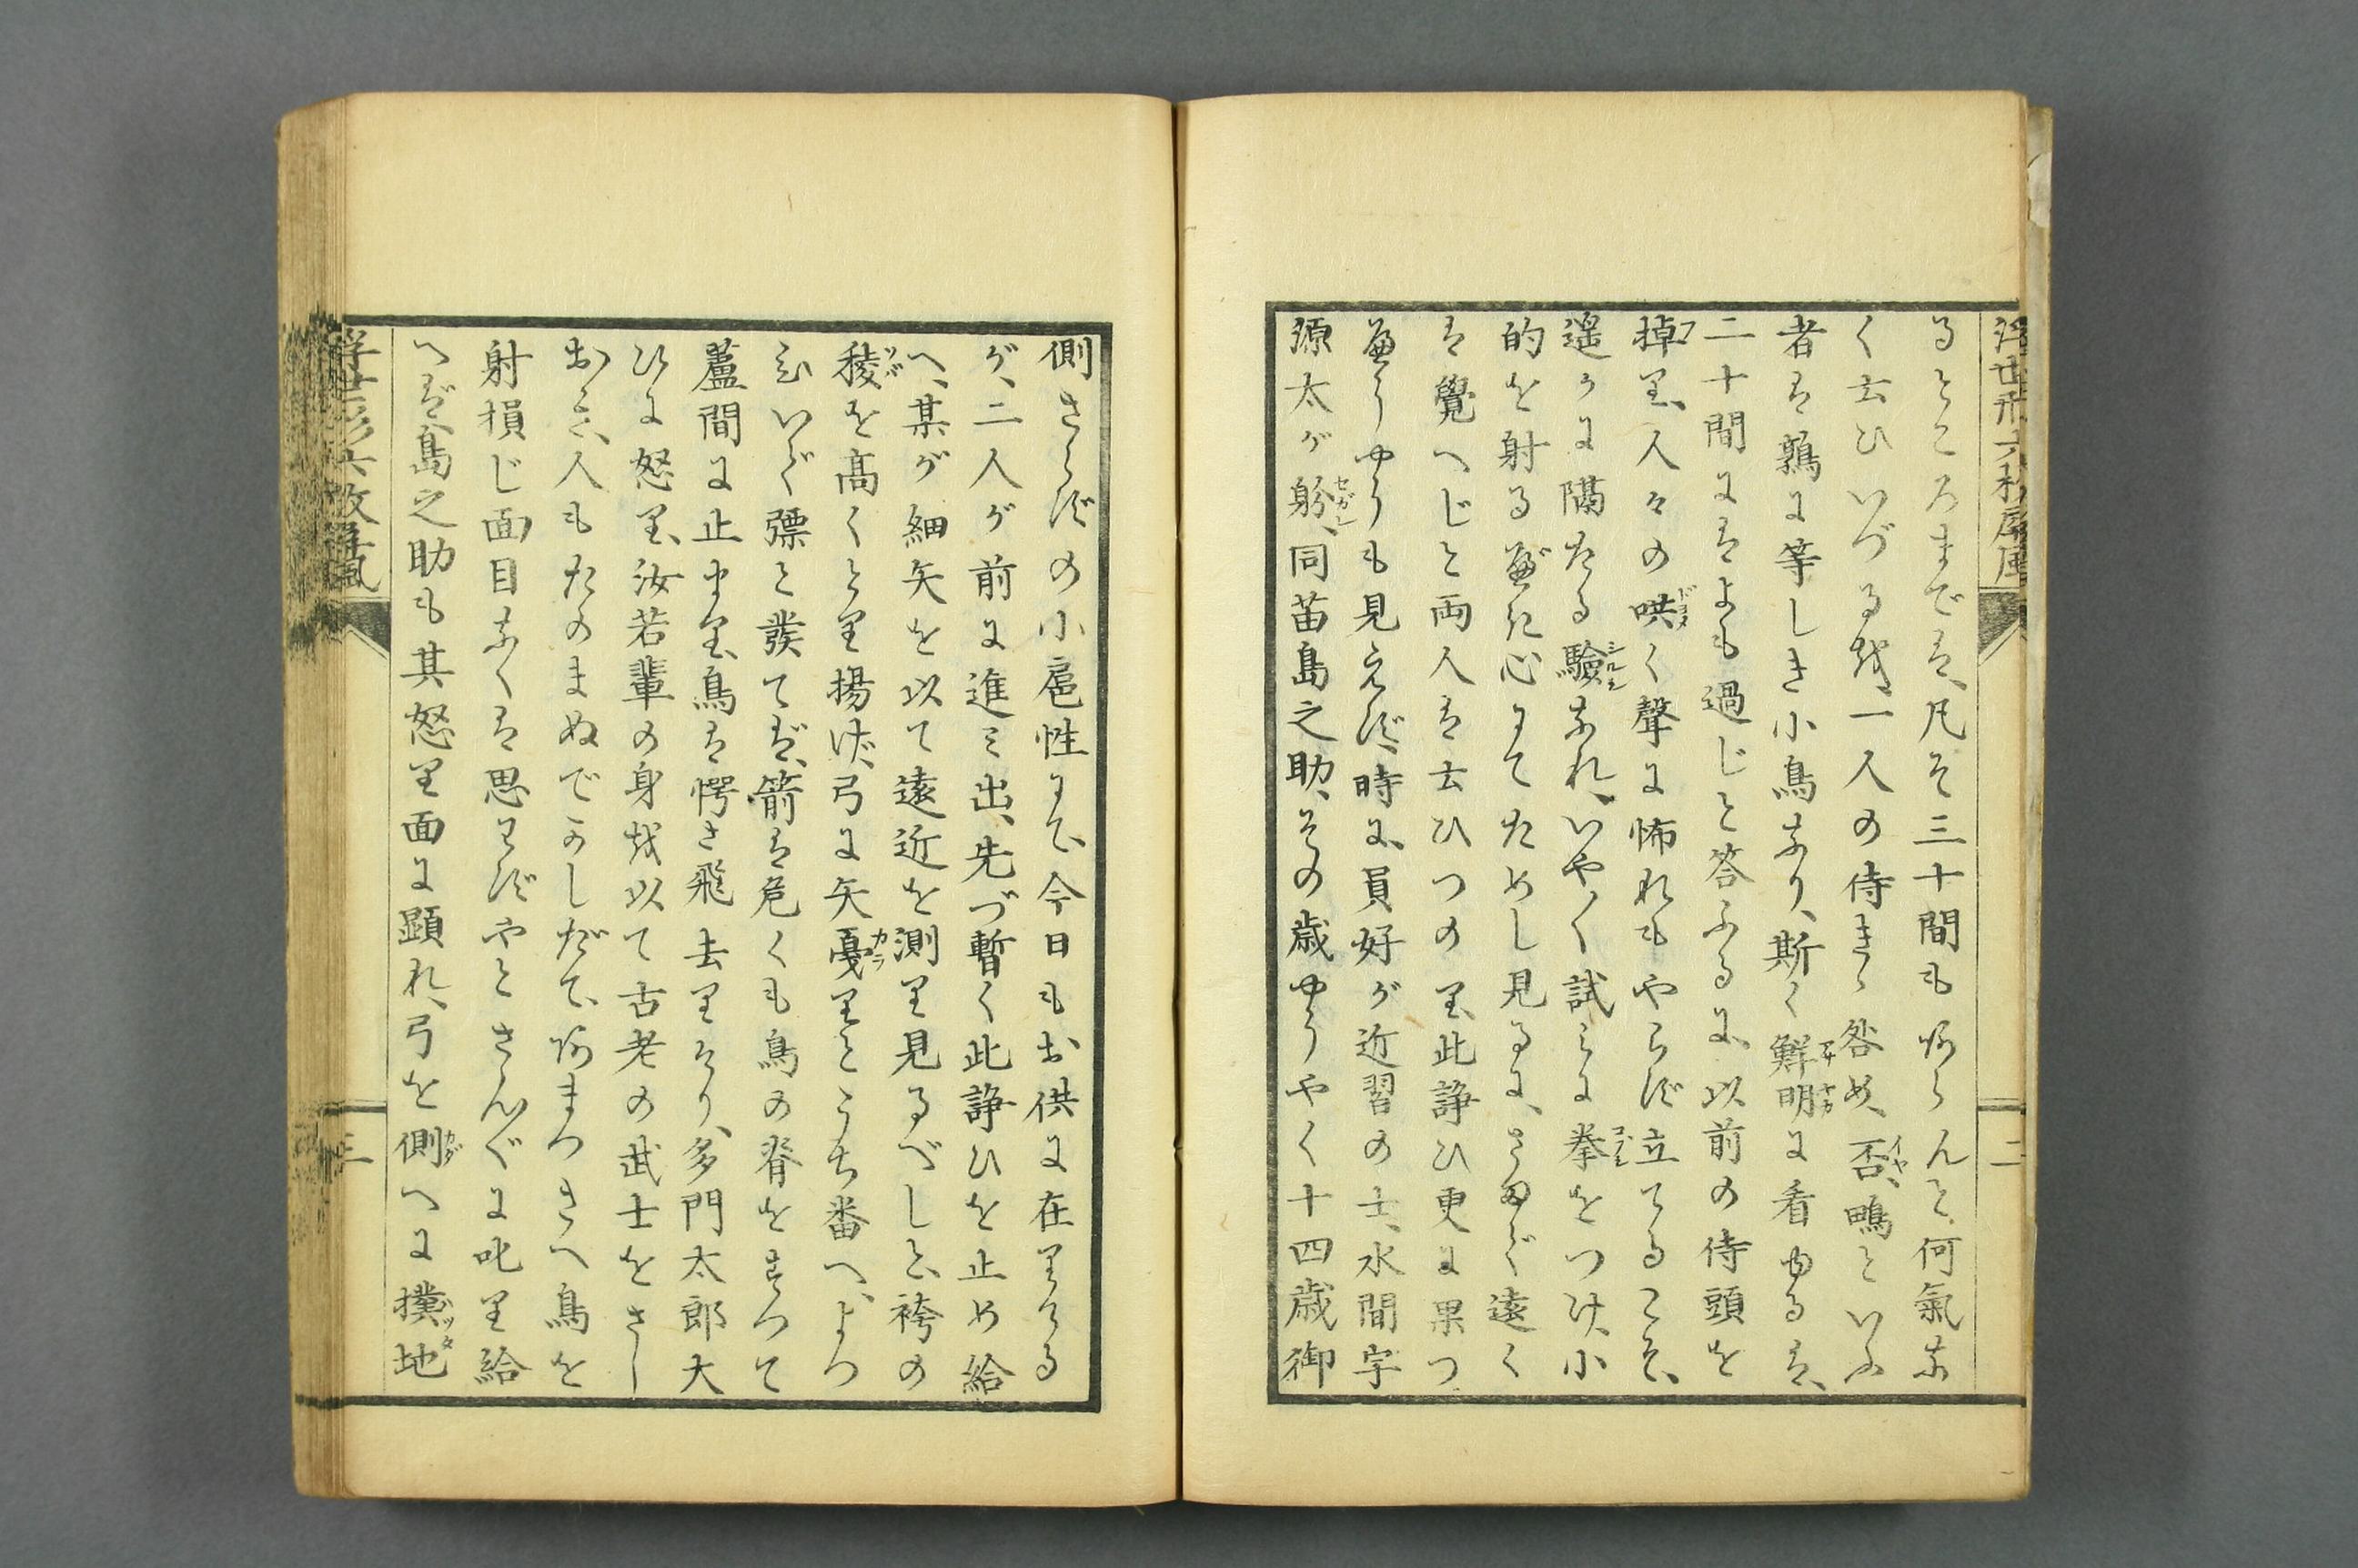 浮世形六枚屏風
二
るところまでは、凡そ三十間もあらんと、何氣な
く云ひいづるを、一人の侍きゝ咎め、否、鴫といふ
者は鶉に等しき小鳥なり、斯く鮮明に看ゆるは、
二十間にはよも過じと答ふるに、以前の侍頭を
掉り、人々の哄く聲に怖れもやらず立てるこそ、
遥かに隔たる驗なれ、いやく試みに拳をつけ、小
的を射る心にてためし見るに、さほど遠く
は覺へじと両人は云ひつのり、此諍ひ更に果つ
べうやうも見えず、時に、員好が近習の士、水間宇
源太が躮、同苗島之助、その歳やうやく十四歳御
側さらずの小扈性にて、今日もお供に在りける
が、二人が前に進み出、先づ暫く此諍ひを止め給
へ、某が細矢を以て遠近を測り見るべしと、袴の
稜を高くとり揚げ、弓に矢戞りとうち番へ、よつ
ぴいて彍と發てば、箭は危くも鳥の脊をすつて
蘆間に止まり、鳥は愕き飛去りけり、多門太郎大
ひに怒り、汝若輩の身を以て古老の武士をさし
おき、人もたのまぬでかしだて、あまつさへ鳥を
射損じ面目なくは思はずやとさんぐに叱り給
へば、島之助も其怒り面に顕れ、弓を側へに撲地
浮世形六枚屏風
三